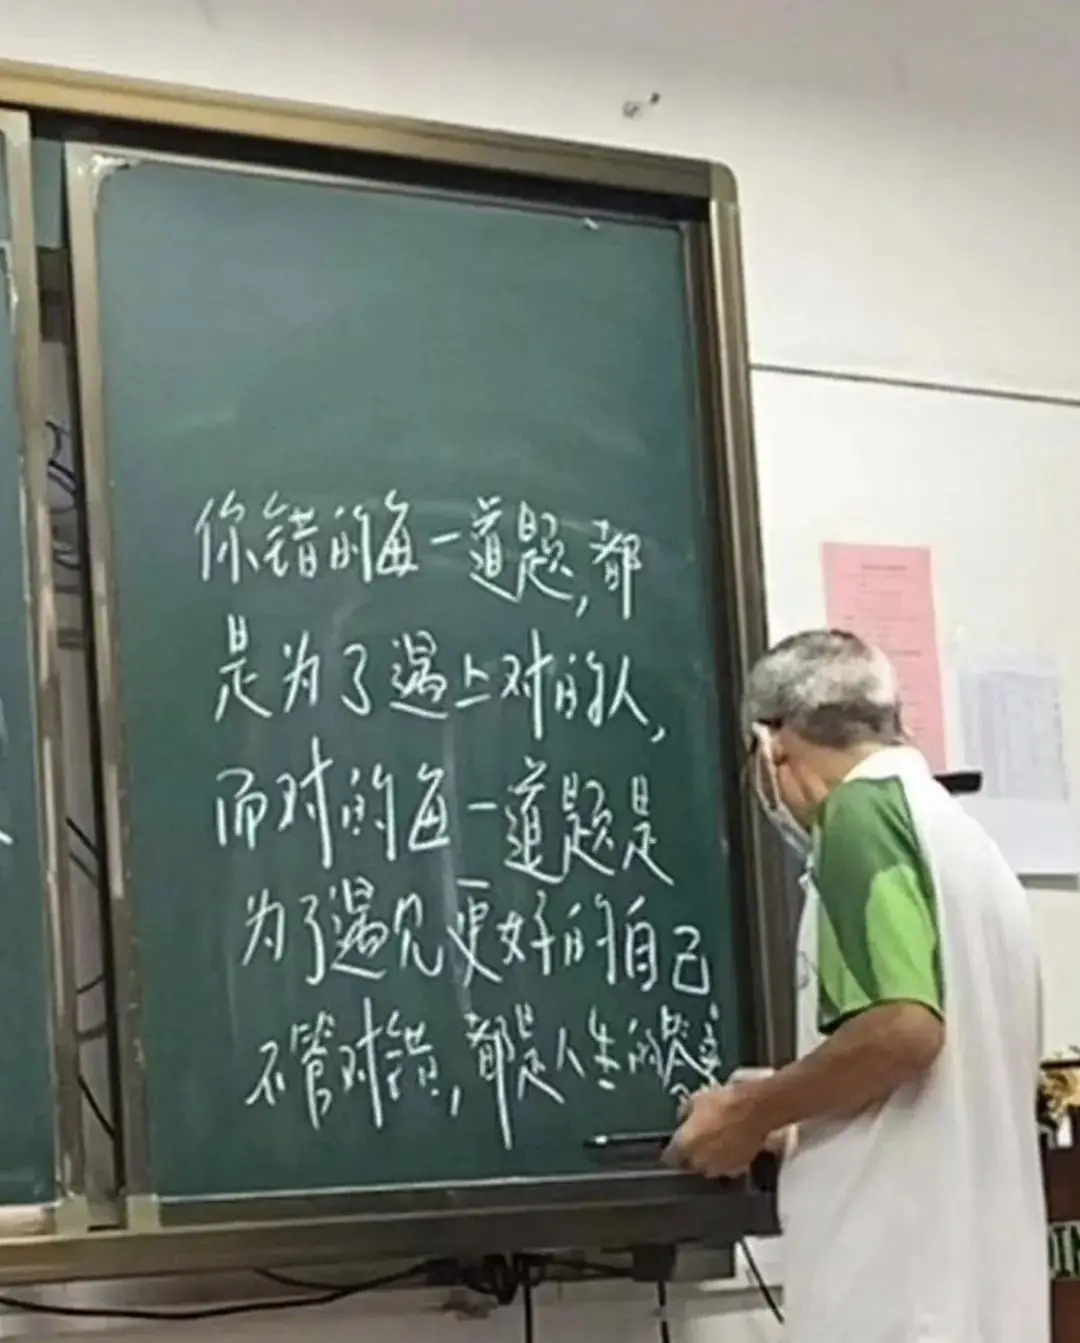 你错的每一道题,都
是为了遇上对的人,
而对的每一道题是
为了遇见更好的自己
不管对错,都是人生的答案